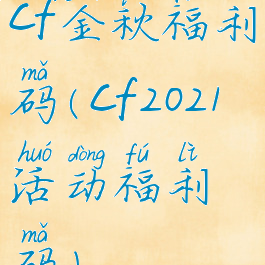 cf金秋福利
mǎ
码(cf2021
huó dòng fú lì
活动福利
mǎ
码)